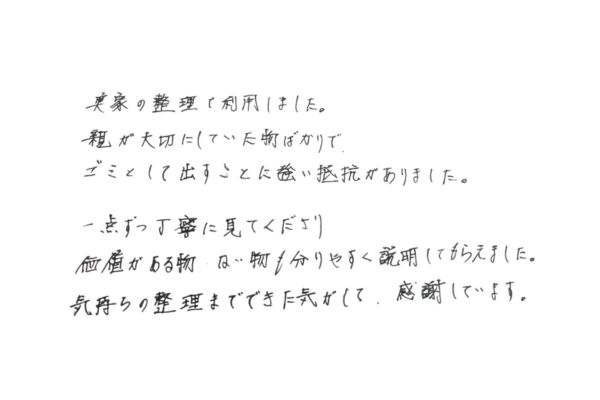 実家の整理で利用しました。
親が大切にしていた物ばかりで、
ゴミとして出すことに強い抵抗がありました。
一点ずつ丁寧に見てくださり
価値がある物、ない物も分りやすく説明してもらえました。
気持ちの整理までできた気がして、感謝しています。